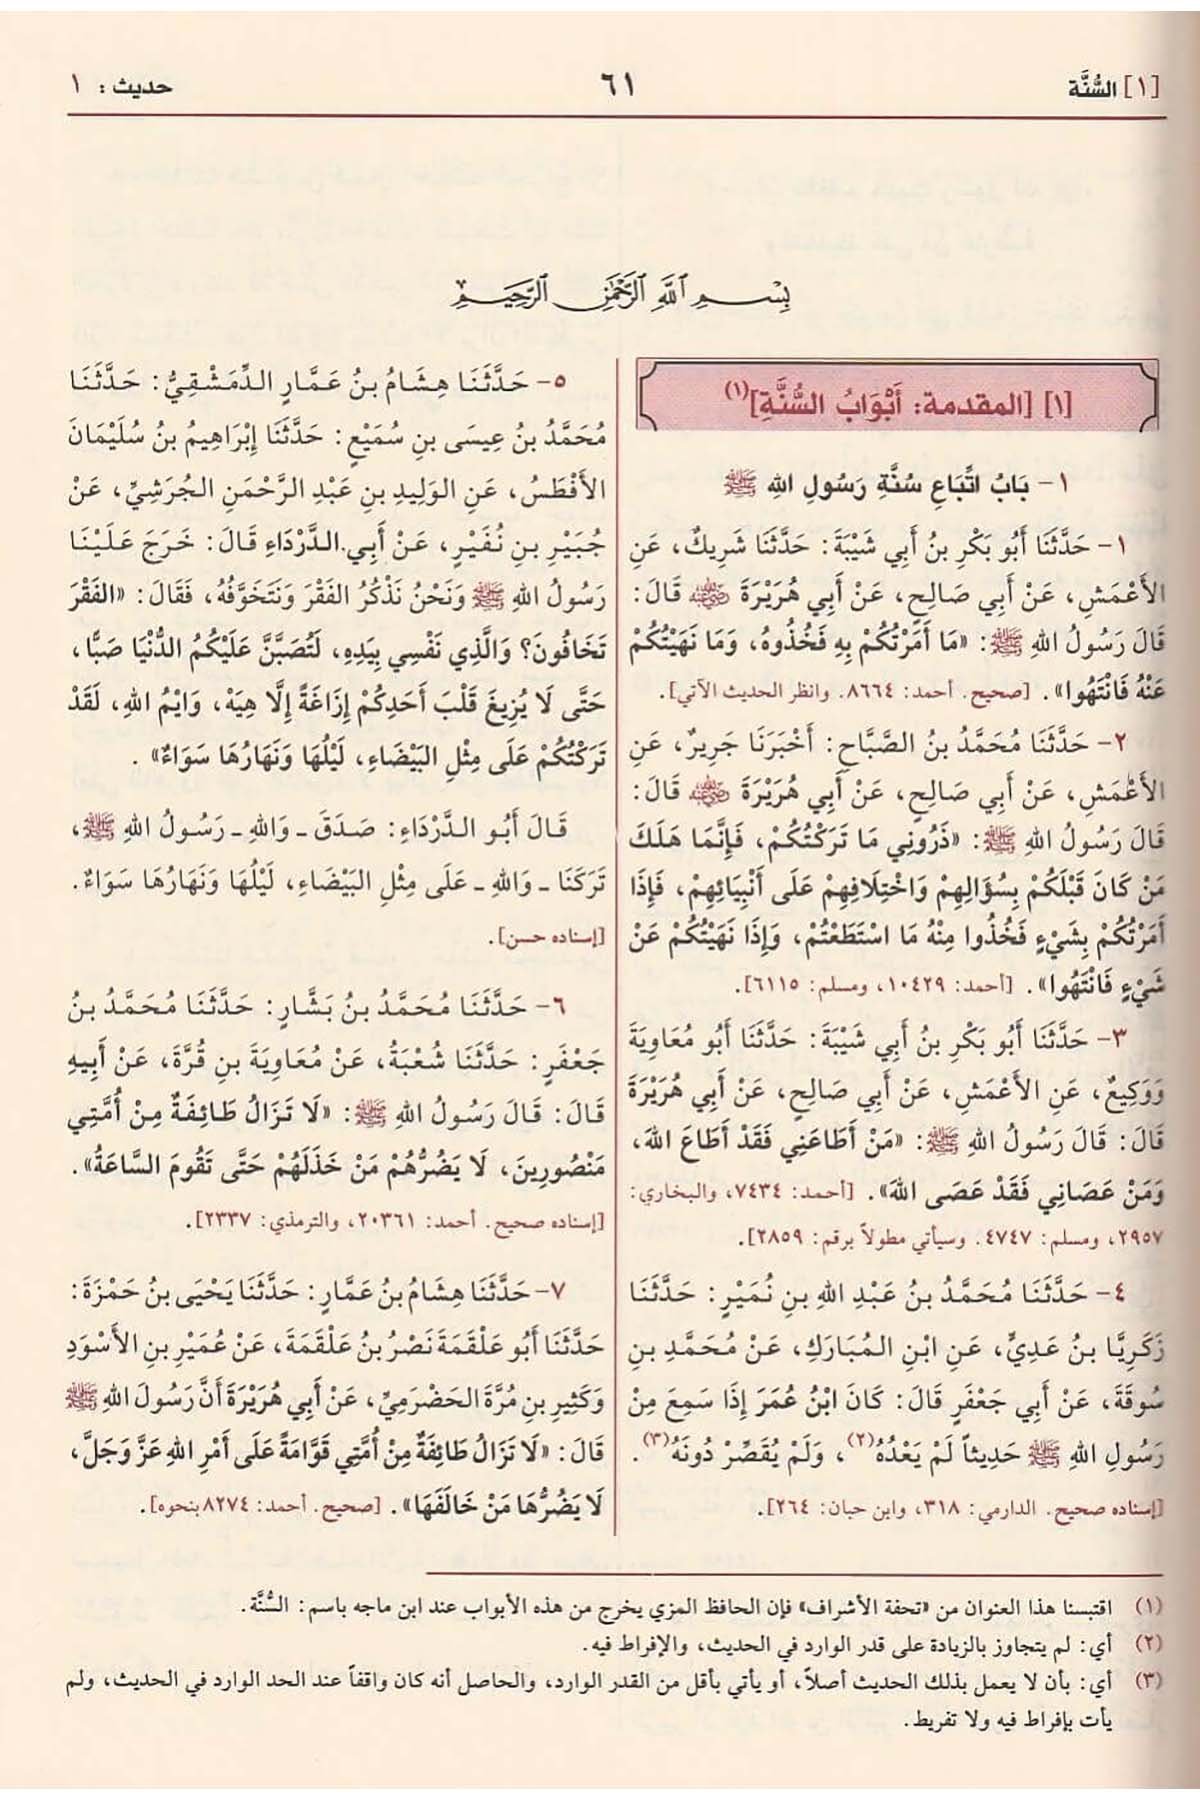 [١] السُّنَّة
٦١
حديث : ١
بِسْمِ اللَّهِ الرَّحْمَٰنِ الرَّحِيمِ
[١] [المقدمة: أَبْوَابُ السُّنَّةِ](١)
١- بَابُ اتِّبَاعِ سُنَّةِ رَسُولِ اللهِ ﷺ
١- حَدَّثَنَا أَبُو بَكْرِ بنُ أَبِي شَيْبَةَ: حَدَّثَنَا شَرِيكٌ، عَنِ
الأَعْمَشِ، عَنْ أَبِي صَالِحٍ، عَنْ أَبِي هُرَيْرَةَ رضي الله عنه قَالَ:
قَالَ رَسُولُ اللهِ ﷺ: «مَا أَمَرْتُكُمْ بِهِ فَخُذُوهُ، وَمَا نَهَيْتُكُمْ
عَنْهُ فَانْتَهُوا». [صحيح. أحمد: ٨٦٦٤. وانظر الحديث الآتي].
٢- حَدَّثَنَا مُحَمَّدُ بنُ الصَّبَّاحِ: أَخْبَرَنَا جَرِيرٌ، عَنِ
الأَعْمَشِ، عَنْ أَبِي صَالِحٍ، عَنْ أَبِي هُرَيْرَةَ رضي الله عنه قَالَ:
قَالَ رَسُولُ اللهِ ﷺ: «ذَرُونِي مَا تَرَكْتُكُمْ، فَإِنَّمَا هَلَكَ
مَنْ كَانَ قَبْلَكُمْ بِسُؤَالِهِمْ وَاخْتِلَافِهِمْ عَلَى أَنْبِيَائِهِمْ، فَإِذَا
أَمَرْتُكُمْ بِشَيْءٍ فَخُذُوا مِنْهُ مَا اسْتَطَعْتُمْ، وَإِذَا نَهَيْتُكُمْ عَنْ
شَيْءٍ فَانْتَهُوا». [أحمد: ١٠٤٢٩، ومسلم: ٦١١٥].
٣- حَدَّثَنَا أَبُو بَكْرِ بنُ أَبِي شَيْبَةَ: حَدَّثَنَا أَبُو مُعَاوِيَةَ
وَوَكِيعٌ، عَنِ الأَعْمَشِ، عَنْ أَبِي صَالِحٍ، عَنْ أَبِي هُرَيْرَةَ
قَالَ: قَالَ رَسُولُ اللهِ ﷺ: «مَنْ أَطَاعَنِي فَقَدْ أَطَاعَ اللهَ،
وَمَنْ عَصَانِي فَقَدْ عَصَى اللهَ». [أحمد: ٧٤٣٤، والبخاري:
٢٩٥٧، ومسلم: ٤٧٤٧. وسيأتي مطولاً برقم: ٢٨٥٩].
٤- حَدَّثَنَا مُحَمَّدُ بنُ عَبْدِ اللهِ بنِ نُمَيْرٍ: حَدَّثَنَا
زَكَرِيَّا بنُ عَدِيٍّ، عَنِ ابْنِ المُبَارَكِ، عَنْ مُحَمَّدِ بنِ
سُوقَةَ، عَنْ أَبِي جَعْفَرٍ قَالَ: كَانَ ابْنُ عُمَرَ إِذَا سَمِعَ مِنْ
رَسُولِ اللهِ ﷺ حَدِيثاً لَمْ يَعْدُهُ(٢)، وَلَمْ يُقَصِّرْ دُونَهُ(٣).
[إسناده صحيح. الدارمي: ٣١٨، وابن حبان: ٢٦٤].
٥- حَدَّثَنَا هِشَامُ بنُ عَمَّارٍ الدِّمَشْقِيُّ: حَدَّثَنَا
مُحَمَّدُ بنُ عِيسَى بنِ سُمَيْعٍ: حَدَّثَنَا إِبْرَاهِيمُ بنُ سُلَيْمَانَ
الأَفْطَسُ، عَنِ الوَلِيدِ بنِ عَبْدِ الرَّحْمَنِ الجُرَشِيِّ، عَنْ
جُبَيْرِ بنِ نُفَيْرٍ، عَنْ أَبِي الدَّرْدَاءِ قَالَ: خَرَجَ عَلَيْنَا
رَسُولُ اللهِ ﷺ وَنَحْنُ نَذْكُرُ الفَقْرَ وَنَتَخَوَّفُهُ، فَقَالَ: «الفَقْرَ
تَخَافُونَ؟ وَالَّذِي نَفْسِي بِيَدِهِ، لَتُصَبَّنَّ عَلَيْكُمُ الدُّنْيَا صَبًّا،
حَتَّى لَا يُزِيغَ قَلْبَ أَحَدِكُمْ إِزَاغَةً إِلَّا هِيَهْ، وَايْمُ اللهِ، لَقَدْ
تَرَكْتُكُمْ عَلَى مِثْلِ البَيْضَاءِ، لَيْلُهَا وَنَهَارُهَا سَوَاءٌ» .
قَالَ أَبُو الدَّرْدَاءِ: صَدَقَ ـ وَاللهِ ـ رَسُولُ اللهِ ﷺ،
تَرَكَنَا ـ وَاللهِ ـ عَلَى مِثْلِ البَيْضَاءِ، لَيْلُهَا وَنَهَارُهَا سَوَاءٌ.
[إسناده حسن].
٦- حَدَّثَنَا مُحَمَّدُ بنُ بَشَّارٍ: حَدَّثَنَا مُحَمَّدُ بنُ
جَعْفَرٍ: حَدَّثَنَا شُعْبَةُ، عَنْ مُعَاوِيَةَ بنِ قُرَّةَ، عَنْ أَبِيهِ
قَالَ: قَالَ رَسُولُ اللهِ ﷺ: «لَا تَزَالُ طَائِفَةٌ مِنْ أُمَّتِي
مَنْصُورِينَ، لَا يَضُرُّهُمْ مَنْ خَذَلَهُمْ حَتَّى تَقُومَ السَّاعَةُ».
[إسناده صحيح. أحمد: ٢٠٣٦١، والترمذي: ٢٣٣٧].
٧- حَدَّثَنَا هِشَامُ بنُ عَمَّارٍ: حَدَّثَنَا يَحْيَى بنُ حَمْزَةَ:
حَدَّثَنَا أَبُو عَلْقَمَةَ نَصْرُ بنُ عَلْقَمَةَ، عَنْ عُمَيْرِ بنِ الأَسْوَدِ
وَكَثِيرِ بنِ مُرَّةَ الحَضْرَمِيِّ، عَنْ أَبِي هُرَيْرَةَ أَنَّ رَسُولَ اللهِ ﷺ
قَالَ: «لَا تَزَالُ طَائِفَةٌ مِنْ أُمَّتِي قَوَّامَةً عَلَى أَمْرِ اللهِ عَزَّ وَجَلَّ،
لَا يَضُرُّهَا مَنْ خَالَفَهَا». [صحيح. أحمد: ٨٢٧٤ بنحوه].
(١) اقتبسنا هذا العنوان من «تحفة الأشراف» فإن الحافظ المزي يخرج من هذه الأبواب عند ابن ماجه باسم: السُّنَّة.
(٢) أي: لم يتجاوز بالزيادة على قدر الوارد في الحديث، والإفراط فيه.
(٣) أي: بأن لا يعمل بذلك الحديث أصلاً، أو يأتي بأقل من القدر الوارد، والحاصل أنه كان واقفاً عند الحد الوارد في الحديث، ولم
يأت بإفراط فيه ولا تفريط.